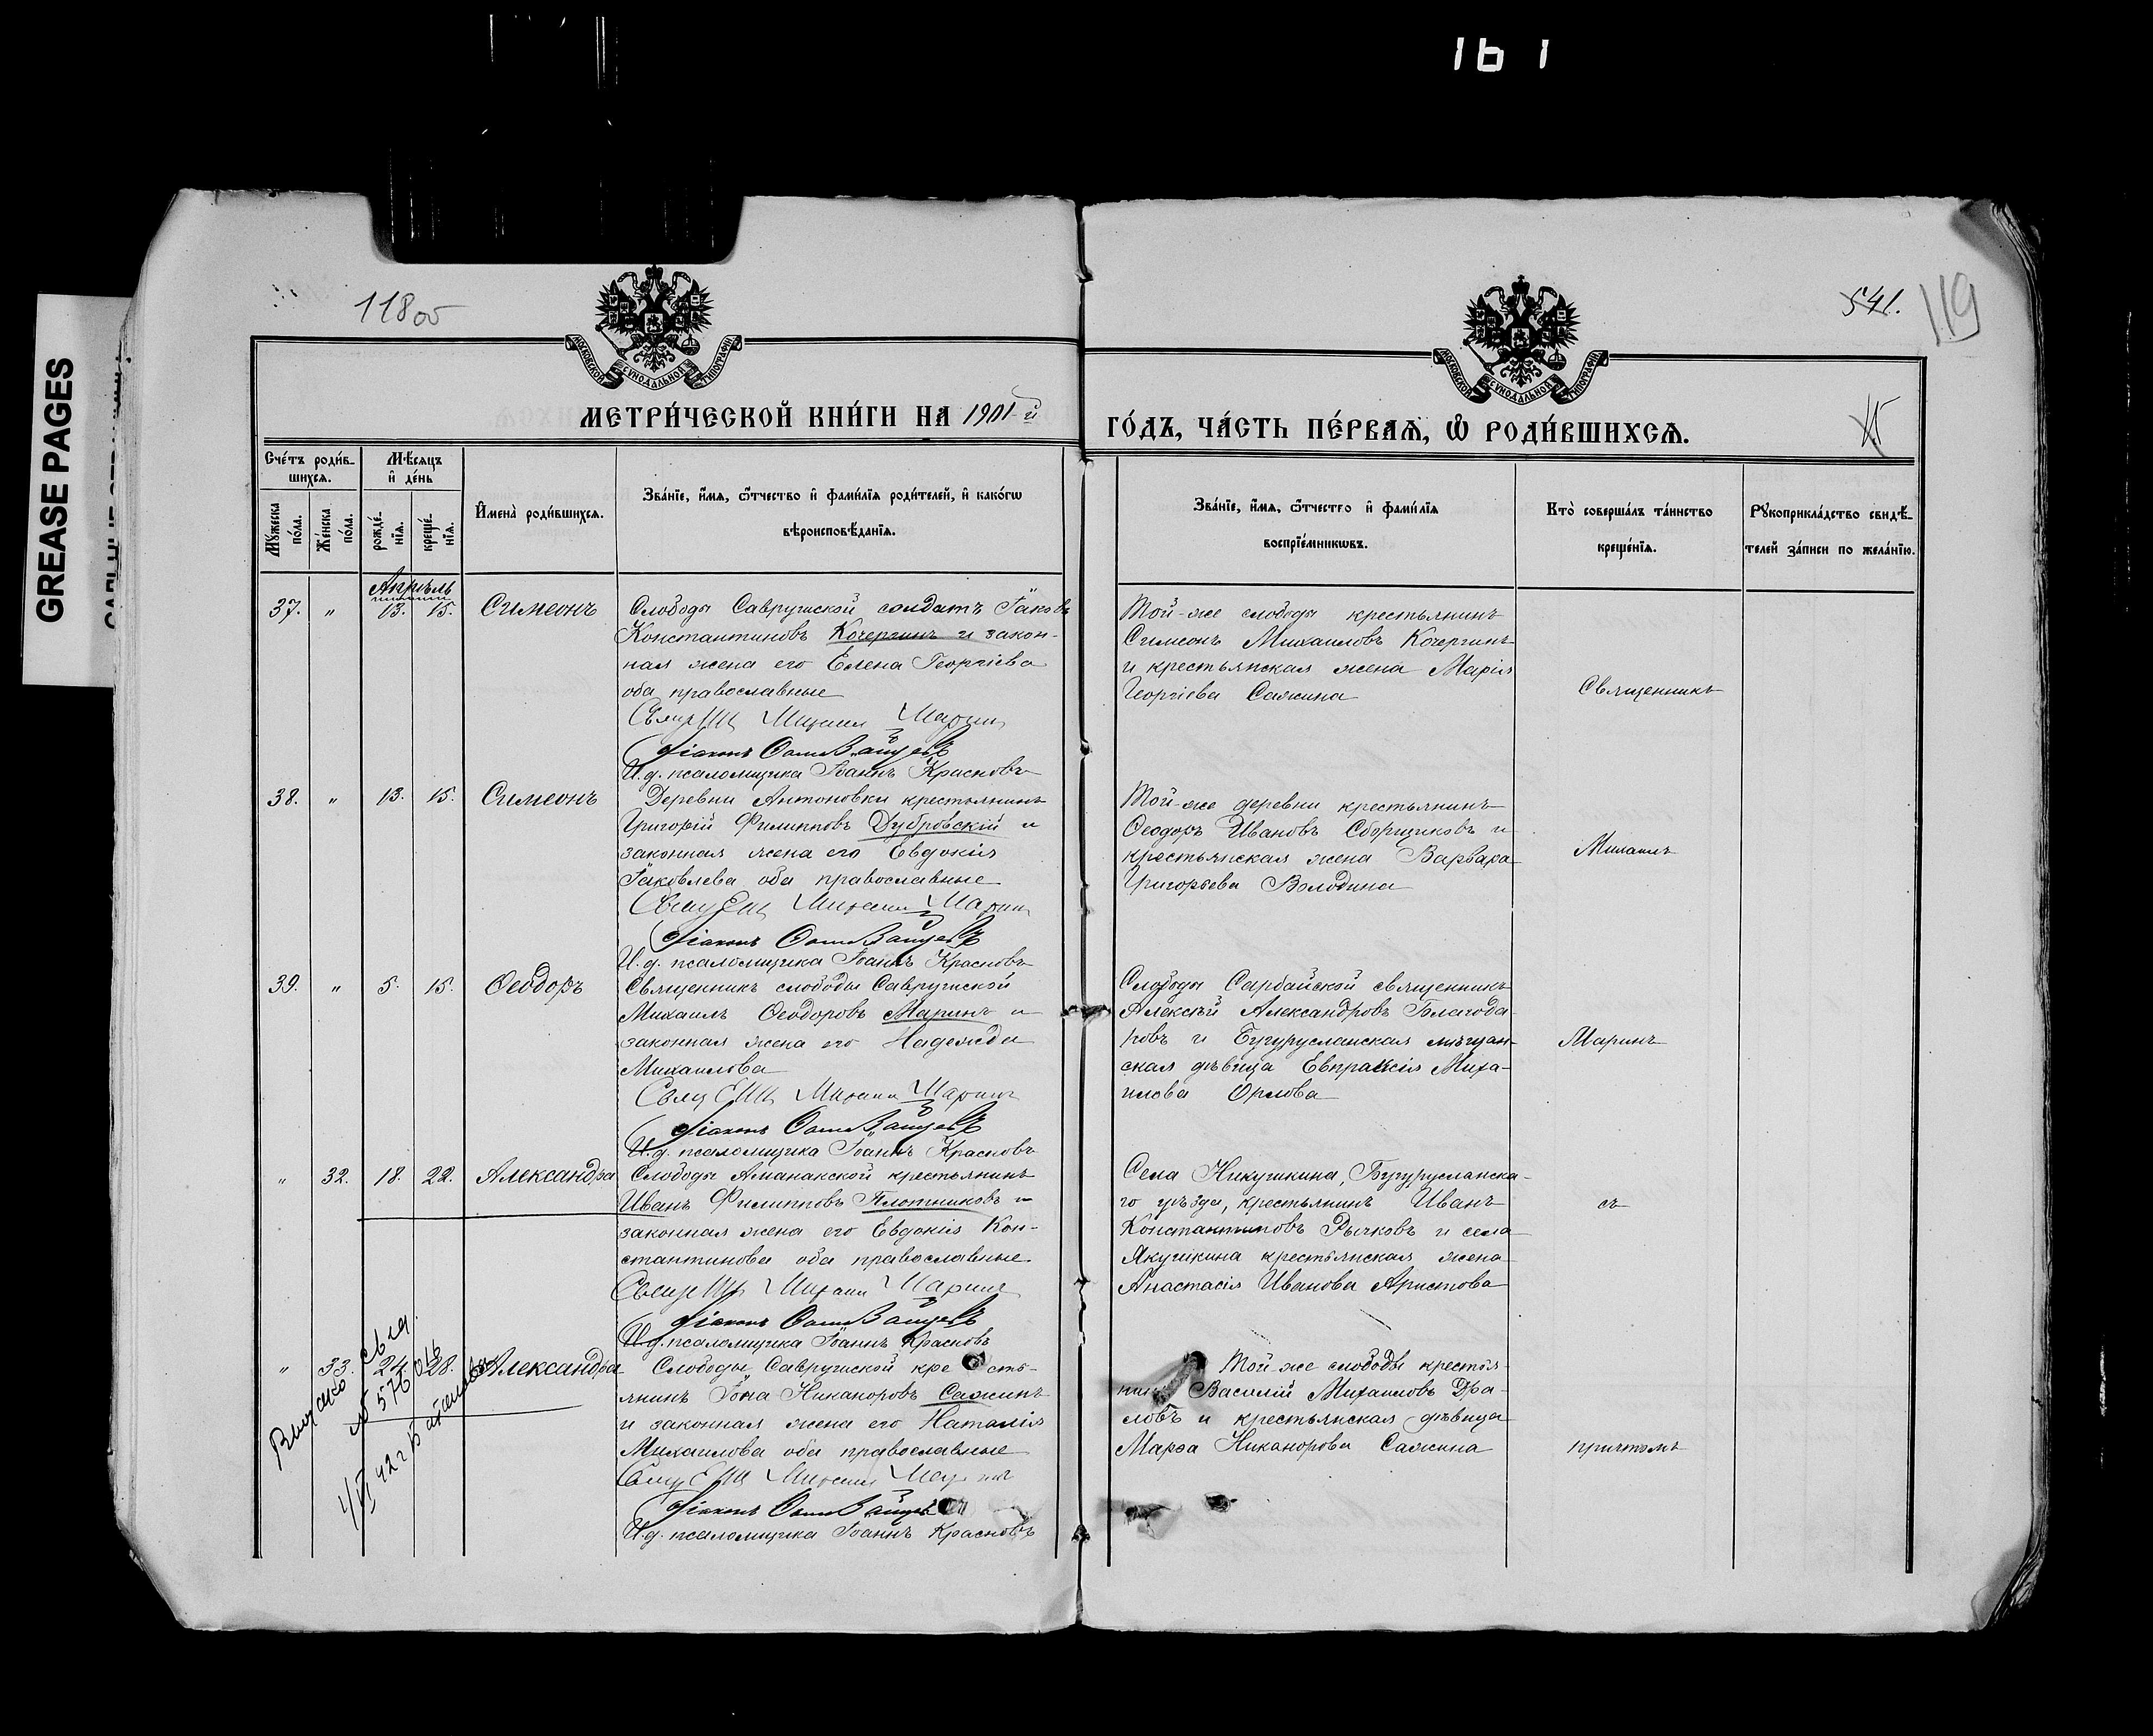 161
GREASE PAGES
118об
541.
119
МОСКОВСКОЙ СУНОДАЛЬНОЙ ТИПОГРАФІИ
МОСКОВСКОЙ СУНОДАЛЬНОЙ ТИПОГРАФІИ
МЕТРИ́ЧЕСКОЙ КНИ́ГИ НА 1901-й
ГО́ДЪ, ЧА́СТЬ ПЕ́РВАѦ, Ѡ РОДИ́ВШИХСѦ.
Сче́тъ роди́в-
шихся.
Мѣ́сяцъ
и де́нь
Мꙋ́жеска по́ла.
Же́нска по́ла.
рожде́-
нїя.
креще́-
нїя.
И҆мена̀ роди́вшихся.
Зва́нїе, и҆́мя, ѻ҆́тчество и҆ фами́лїя роди́телей, и҆ како́гѡ
вѣроисповѣ́данїя.
Зва́нїе, и҆́мя, ѻ҆́тчество и҆ фами́лїя
воспрїе́мникѡвъ.
Кто̀ соверша́лъ та́инство
креще́нїя.
Рꙋкоприкла́дство свидѣ́-
телей за́писи по жела́нїю.
Апрѣль
37. " 13. 15. Симеонъ
Слободы Саврушской солдатъ Іаковъ
Константиновъ Кочергинъ и закон-
ная жена его Елена Георгіева
оба православные
Священ Михаил Марин
Діаконъ
И. д. псаломщика Іоаннъ Красновъ
Той-же слободы крестьянинъ
Симеонъ Михаиловъ Кочергинъ
и крестьянская жена Марія
Георгіева Сажина
Священникъ
38. " 13. 15. Симеонъ
Деревни Антоновки крестьянинъ
Григорій Филипповъ Дубровскій и
законная жена его Евдокія
Іаковлева оба православные
Священ Михаил Марин
Діаконъ
И. д. псаломщика Іоаннъ Красновъ
Той-же деревни крестьянинъ
Ѳеодоръ Ивановъ Сборщиковъ и
крестьянская жена Варвара
Григорьева Володина
Михаилъ
39. " 5. 15. Ѳеодоръ
Священникъ слободы Саврушской
Михаилъ Ѳеодоровъ Маринъ и
законная жена его Надежда
Михаилова
Священ Михаил Марин
Діаконъ
И. д. псаломщика Іоаннъ Красновъ
Слободы Сарбайской священникъ
Алексѣй Александровъ Благода-
ровъ и Бугурусланская мѣщан-
ская дѣвица Евпраксія Миха-
илова Орлова
Маринъ
" 32. 18. 22. Александра
Слободы Аманакской крестьянинъ
Иванъ Филипповъ Плотниковъ и
законная жена его Евдокія Кон-
стантинова оба православные
Священ Михаил Марин
Діаконъ
И. д. псаломщика Іоаннъ Красновъ
Села Никушкина, Бугурусланска-
го уѣзда, крестьянинъ Иванъ
Константиновъ Рычковъ и села
Якушкина крестьянская жена
Анастасія Иванова Аристова
съ
" 33. 24. 28. Александра
Слободы Саврушской кре сть-
янинъ Іона Никаноровъ Сажинъ
и законная жена его Наталія
Михаилова оба православные
Священ Михаил
Діаконъ
И. д. псаломщика Іоаннъ Красновъ
Той-же слободы крестья-
Василій Михаиловъ
и крестьянская дѣвица
Марѳа Никанорова Сажина
причтомъ
Выдано
№ 576016
42 г